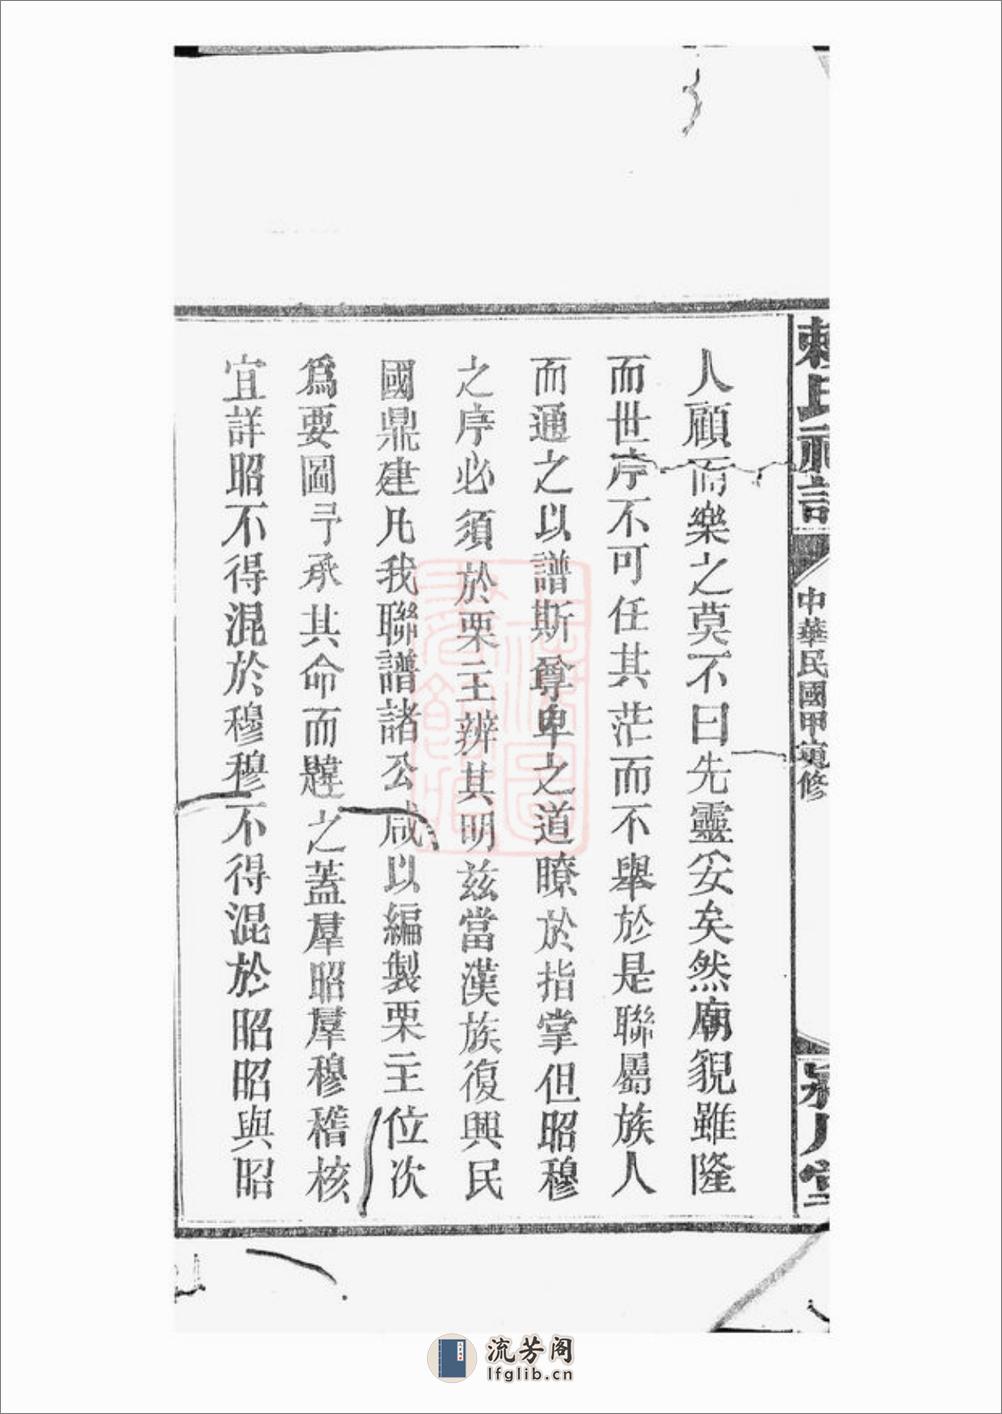 賴氏祠譜
中華民國甲寅修
潁川堂
人顧而樂之莫不曰先靈妥矣然廟貌雖隆
而世序不可任其茫而不舉於是聯屬族人
而通之以譜斯尊卑之道瞭於指掌但昭穆
之序必須於栗主辨其明兹當漢族復興民
國鼎建凡我聯譜諸公咸以編製栗主位次
爲要圖予承其命而韙之蓋羣昭羣穆稽核
宜詳昭不得混於穆穆不得混於昭昭與昭
流芳阁
lfglib.cn